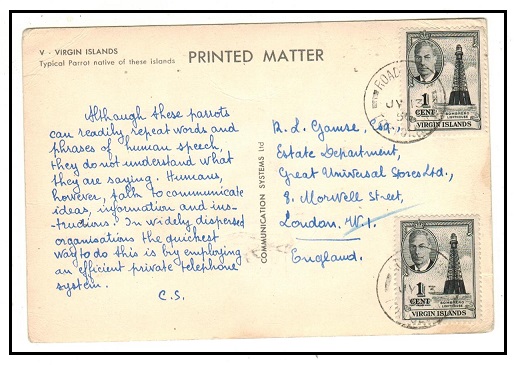 V - VIRGIN ISLANDS
Typical Parrot native of these islands
PRINTED MATTER
Although these parrots
can readily repeat words and
phrases of human speech,
they do not understand what
they are saying. Humans,
however, talk to communicate
ideas, information and ins-
tructions. In widely dispersed
organisations the quickest
way to do this is by employing
an efficient private telephone
system.
C.S.
COMMUNICATION SYSTEMS Ltd
R. L. Gamse, Esq.
Estate Department,
Great Universal Stores Ltd.,
8. Morwell Street,
London. W.1.
England.
ROAD
JY 13
1
CENT
SOMBRERO
LIGHTHOUSE
VIRGIN ISLANDS
JY 13
1
CENT
SOMBRERO
LIGHTHOUSE
VIRGIN ISLANDS